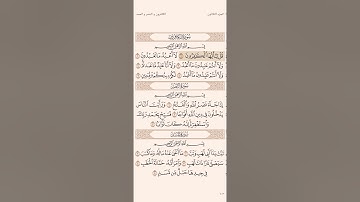 الكافرون و النصر و المسد
سُورَةُ الكَافِرُونَ
بِسْمِ اللَّهِ الرَّحْمَٰنِ الرَّحِيمِ
قُلْ يَا أَيُّهَا الْكَافِرُونَ ۝ لَا أَعْبُدُ مَا تَعْبُدُونَ ۝
وَلَا أَنتُمْ عَابِدُونَ مَا أَعْبُدُ ۝ وَلَا أَنَا عَابِدٌ مَّا عَبَدتُّمْ ۝
وَلَا أَنتُمْ عَابِدُونَ مَا أَعْبُدُ ۝ لَكُمْ دِينُكُمْ وَلِيَ دِينِ ۝
سُورَةُ النَّصْرِ
بِسْمِ اللَّهِ الرَّحْمَٰنِ الرَّحِيمِ
إِذَا جَاءَ نَصْرُ اللَّهِ وَالْفَتْحُ ۝ وَرَأَيْتَ النَّاسَ
يَدْخُلُونَ فِي دِينِ اللَّهِ أَفْوَاجًا ۝ فَسَبِّحْ بِحَمْدِ رَبِّكَ
وَاسْتَغْفِرْهُ إِنَّهُ كَانَ تَوَّابًا ۝
سُورَةُ المَسَدِ
بِسْمِ اللَّهِ الرَّحْمَٰنِ الرَّحِيمِ
تَبَّتْ يَدَا أَبِي لَهَبٍ وَتَبَّ ۝ مَا أَغْنَىٰ عَنْهُ مَالُهُ وَمَا كَسَبَ ۝
سَيَصْلَىٰ نَارًا ذَاتَ لَهَبٍ ۝ وَامْرَأَتُهُ حَمَّالَةَ الْحَطَبِ ۝
فِي جِيدِهَا حَبْلٌ مِّن مَّسَدٍ ۝